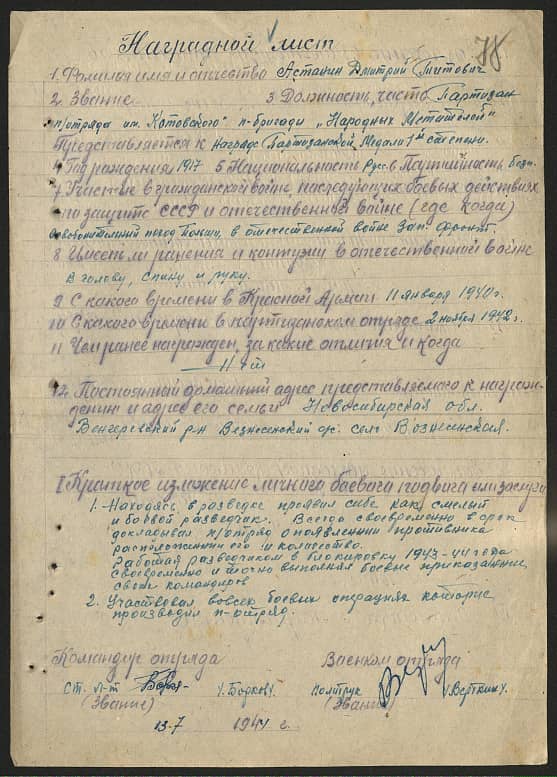 78
Наградной лист
1. Фамилия имя и отчество Астанин Дмитрий Титович
2 Звание 3. Должность, часть Партизан
п/отряда им. Котовского п-бригады „Народных Мстителей"
Представляется к Награде Партизанской Медали 1й степени.
4 Год рождения 1917 5 Национальность Рус. 6 Партийность безп.
7 Участие в гражданской войне, последующих боевых действиях
по защите СССР и отечественной войне (где когда)
Освободительный поход Польши, в отечественной войне Зап. Фронт.
8 Имеет ли ранения и контузии в отечественной войне
В голову, спину и руки.
9 С какого времени в Красной Армии 11 января 1940 г.
10 С какого времени в партизанском отряде 2 ноября 1942 г.
11 Чем ранее награжден, за какие отличия и когда
— Нет
12. Постоянный домашний адрес представляемого к награж-
дению и адрес его семьи Новосибирская обл.
Венгеровский р-н Вознесенский с/с. село Вознесенская.
I Краткое изложение личного боевого подвига или заслуги
1. Находясь в разведке проявил себя как смелый
и боевой разведчик. Всегда своевременно в срок
докладывал п/отряд о появлении противника
расположении его и количество.
Работая разведчиком в блокировку 1943-44 года
своевременно и точно выполнял боевые приказание,
своих командиров
2. Участвовал во всех боевых операциях которые
производил п-отряд.
Командир отряда Военком отряда
Ст. л-т /Бобков/ Политрук /Верткин/
(Звание) (Звание)
13-7 1944 г.